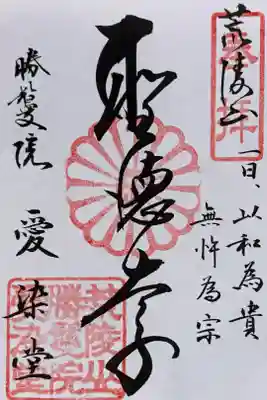 荒陵山
一曰、以和為貴
無忤為宗
奉拝
聖徳皇
勝鬘院 愛染堂
荒陵山
勝鬘院
愛染堂